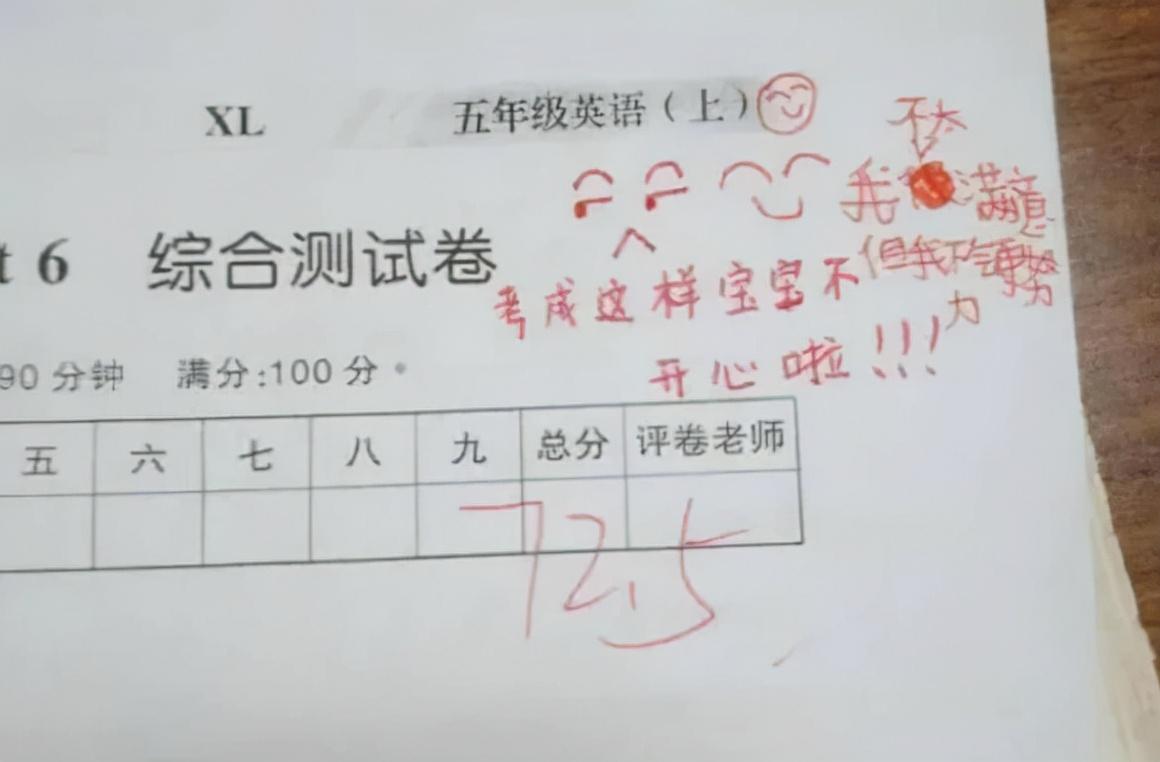 XL 五年级英语（上）
不太
我 满意
t 6 综合测试卷
但我不会更努力
力
考成这样宝宝不
开心啦!!!
90 分钟 满分:100 分
五 六 七 八 九 总分 评卷老师
72.5